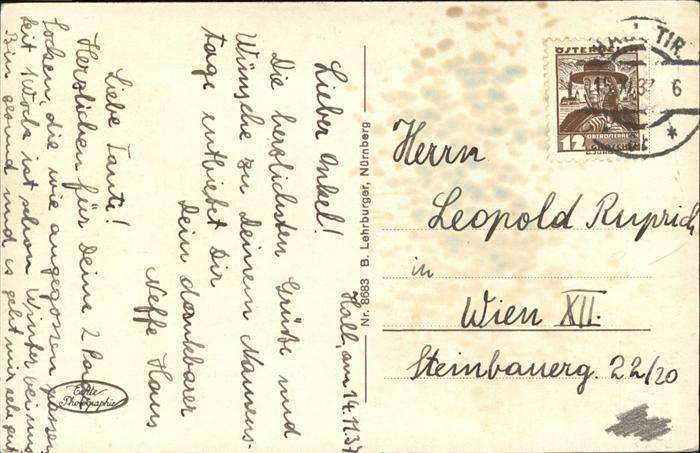 Hall, am 14.11.37
Lieber Onkel!
Die herzlichsten Grüße und
Wünsche zu Deinem Namens-
tage entbietet Dir
Dein dankbarer
Neffe Hans
Liebe Tante!
Herzlichen für Deine 2 Paar
Socken, die wie angegossen passen.
Seit 1 Woche ist schon Winter bei uns.
Bin gesund und es geht mir sehr gut
Echte
Photographie
Nr. 8683 B. Lehrburger, Nürnberg
ÖSTERREICH
12
TIR.
37 6
Herrn
Leopold Ruprich
in
Wien XII.
Steinbauerg. 22/20